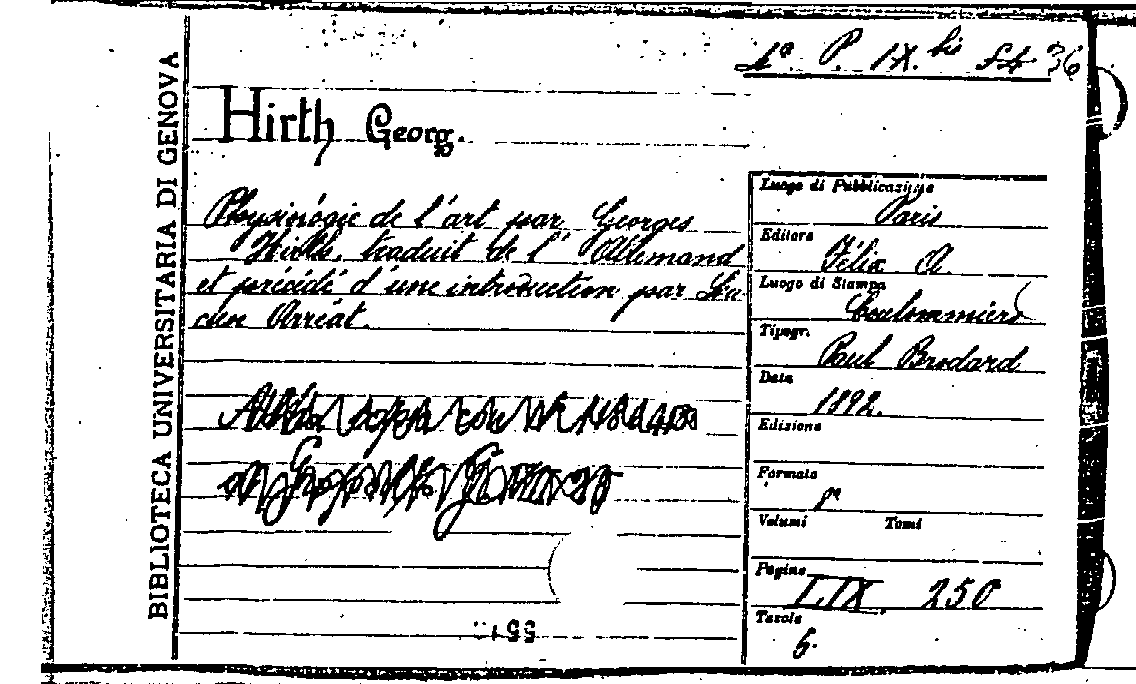 BIBLIOTECA UNIVERSITARIA DI GENOVA
1ª P. IX. bis 36
Hirth Georg.
Physiologie de l'art par Georges
Hirth, traduit de l'Allemand
et précédé d'une introduction par Lu
cien Arréat.
Luogo di Pubblicazione
Paris
Editore
Félix A
Luogo di Stampa
Coulommiers
Tipogr.
Paul Brodard
Data
1892.
Edizione
Formato
8º
Volumi Tomi
Pagine
LIX 250
Tavole
6.